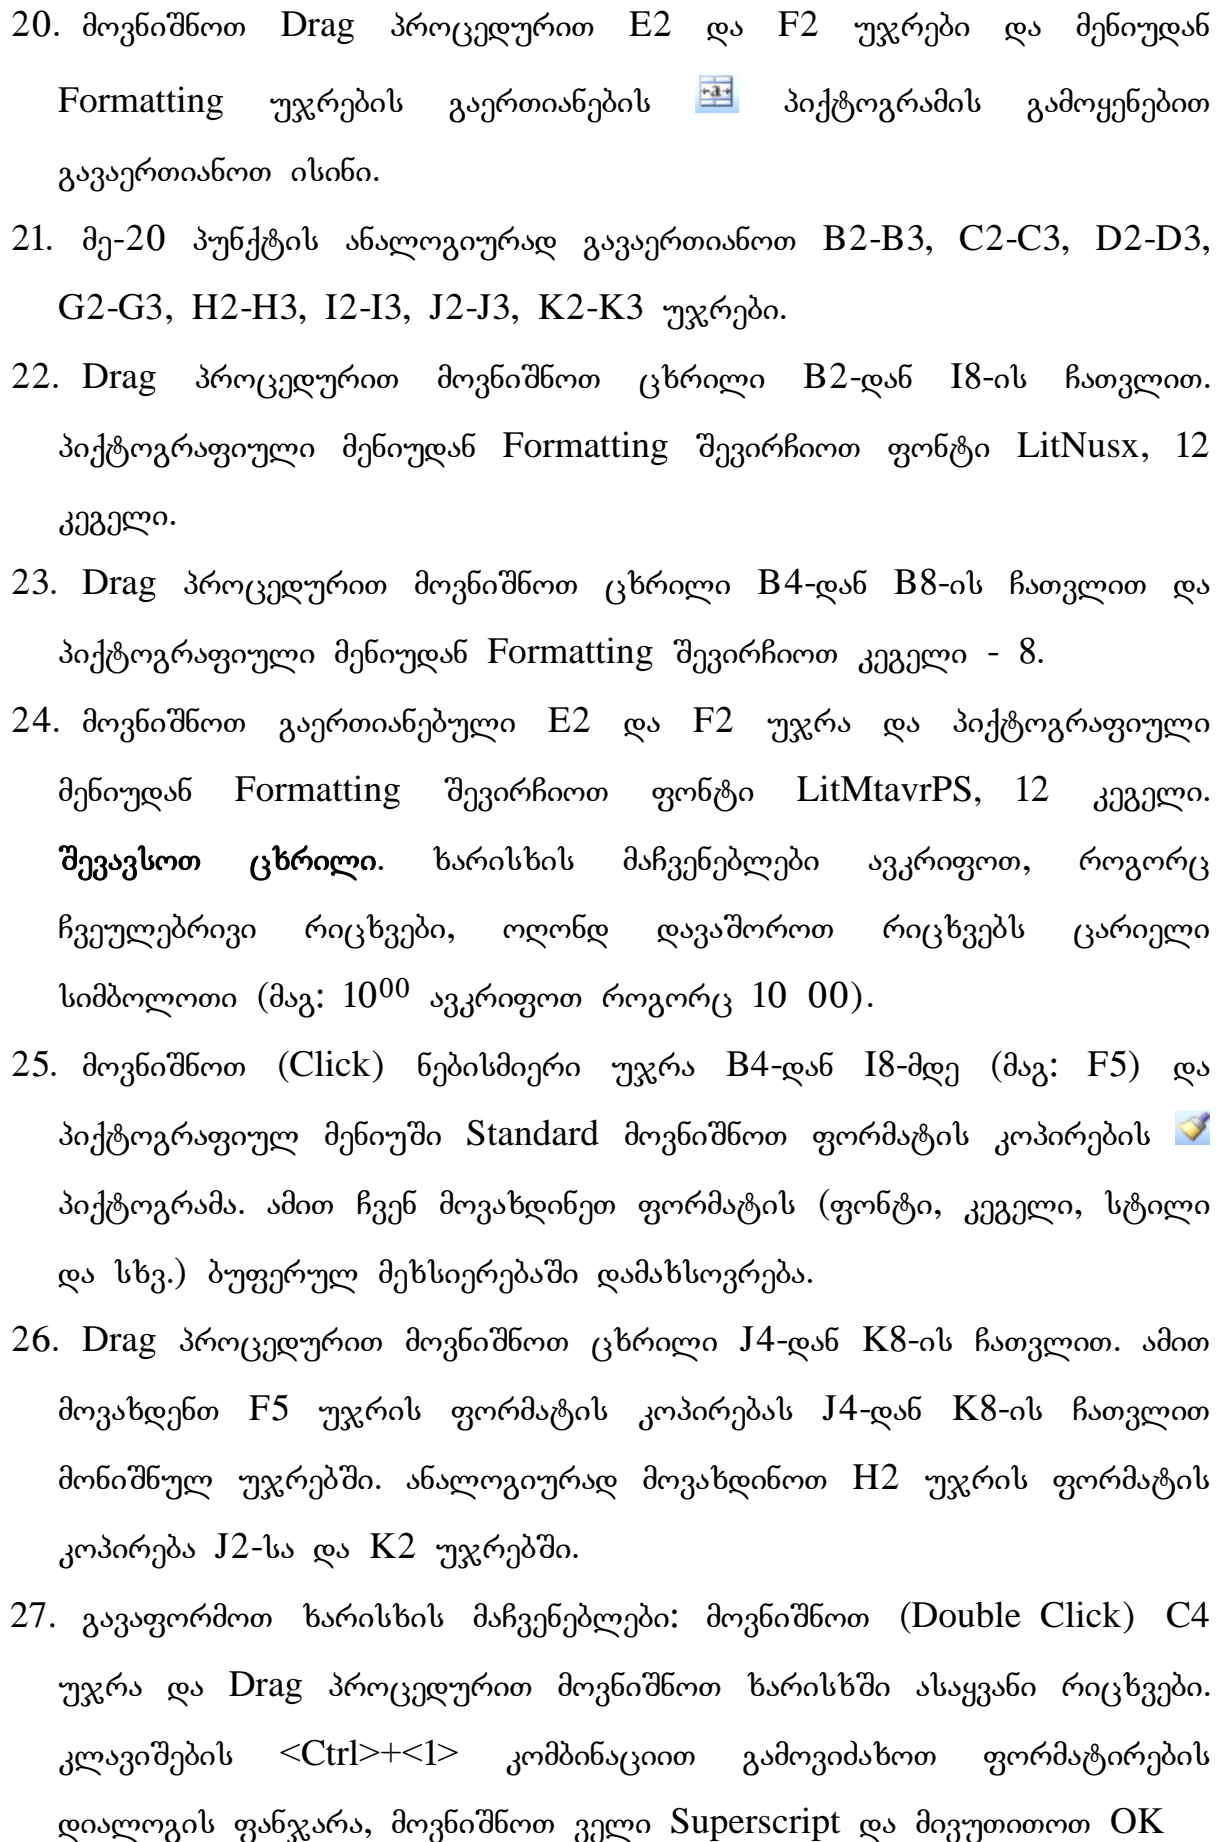 20. მოვნიშნოთ Drag პროცედურით E2 და F2 უჯრები და მენიუდან
Formatting უჯრების გაერთიანების პიქტოგრამის გამოყენებით
გავაერთიანოთ ისინი.
21. მე-20 პუნქტის ანალოგიურად გავაერთიანოთ B2-B3, C2-C3, D2-D3,
G2-G3, H2-H3, I2-I3, J2-J3, K2-K3 უჯრები.
22. Drag პროცედურით მოვნიშნოთ ცხრილი B2-დან I8-ის ჩათვლით.
პიქტოგრაფიული მენიუდან Formatting შევირჩიოთ ფონტი LitNusx, 12
კეგელი.
23. Drag პროცედურით მოვნიშნოთ ცხრილი B4-დან B8-ის ჩათვლით და
პიქტოგრაფიული მენიუდან Formatting შევირჩიოთ კეგელი - 8.
24. მოვნიშნოთ გაერთიანებული E2 და F2 უჯრა და პიქტოგრაფიული
მენიუდან Formatting შევირჩიოთ ფონტი LitMtavrPS, 12 კეგელი.
შევავსოთ ცხრილი. ხარისხის მაჩვენებლები ავკრიფოთ, როგორც
ჩვეულებრივი რიცხვები, ოღონდ დავაშოროთ რიცხვებს ცარიელი
სიმბოლოთი (მაგ: 10⁰⁰ ავკრიფოთ როგორც 10 00).
25. მოვნიშნოთ (Click) ნებისმიერი უჯრა B4-დან I8-მდე (მაგ: F5) და
პიქტოგრაფიულ მენიუში Standard მოვნიშნოთ ფორმატის კოპირების
პიქტოგრამა. ამით ჩვენ მოვახდინეთ ფორმატის (ფონტი, კეგელი, სტილი
და სხვ.) ბუფერულ მეხსიერებაში დამახსოვრება.
26. Drag პროცედურით მოვნიშნოთ ცხრილი J4-დან K8-ის ჩათვლით. ამით
მოვახდენთ F5 უჯრის ფორმატის კოპირებას J4-დან K8-ის ჩათვლით
მონიშნულ უჯრებში. ანალოგიურად მოვახდინოთ H2 უჯრის ფორმატის
კოპირება J2-სა და K2 უჯრებში.
27. გავაფორმოთ ხარისხის მაჩვენებლები: მოვნიშნოთ (Double Click) C4
უჯრა და Drag პროცედურით მოვნიშნოთ ხარისხში ასაყვანი რიცხვები.
კლავიშების <Ctrl>+<1> კომბინაციით გამოვიძახოთ ფორმატირების
დიალოგის ფანჯარა, მოვნიშნოთ ველი Superscript და მივუთითოთ OK